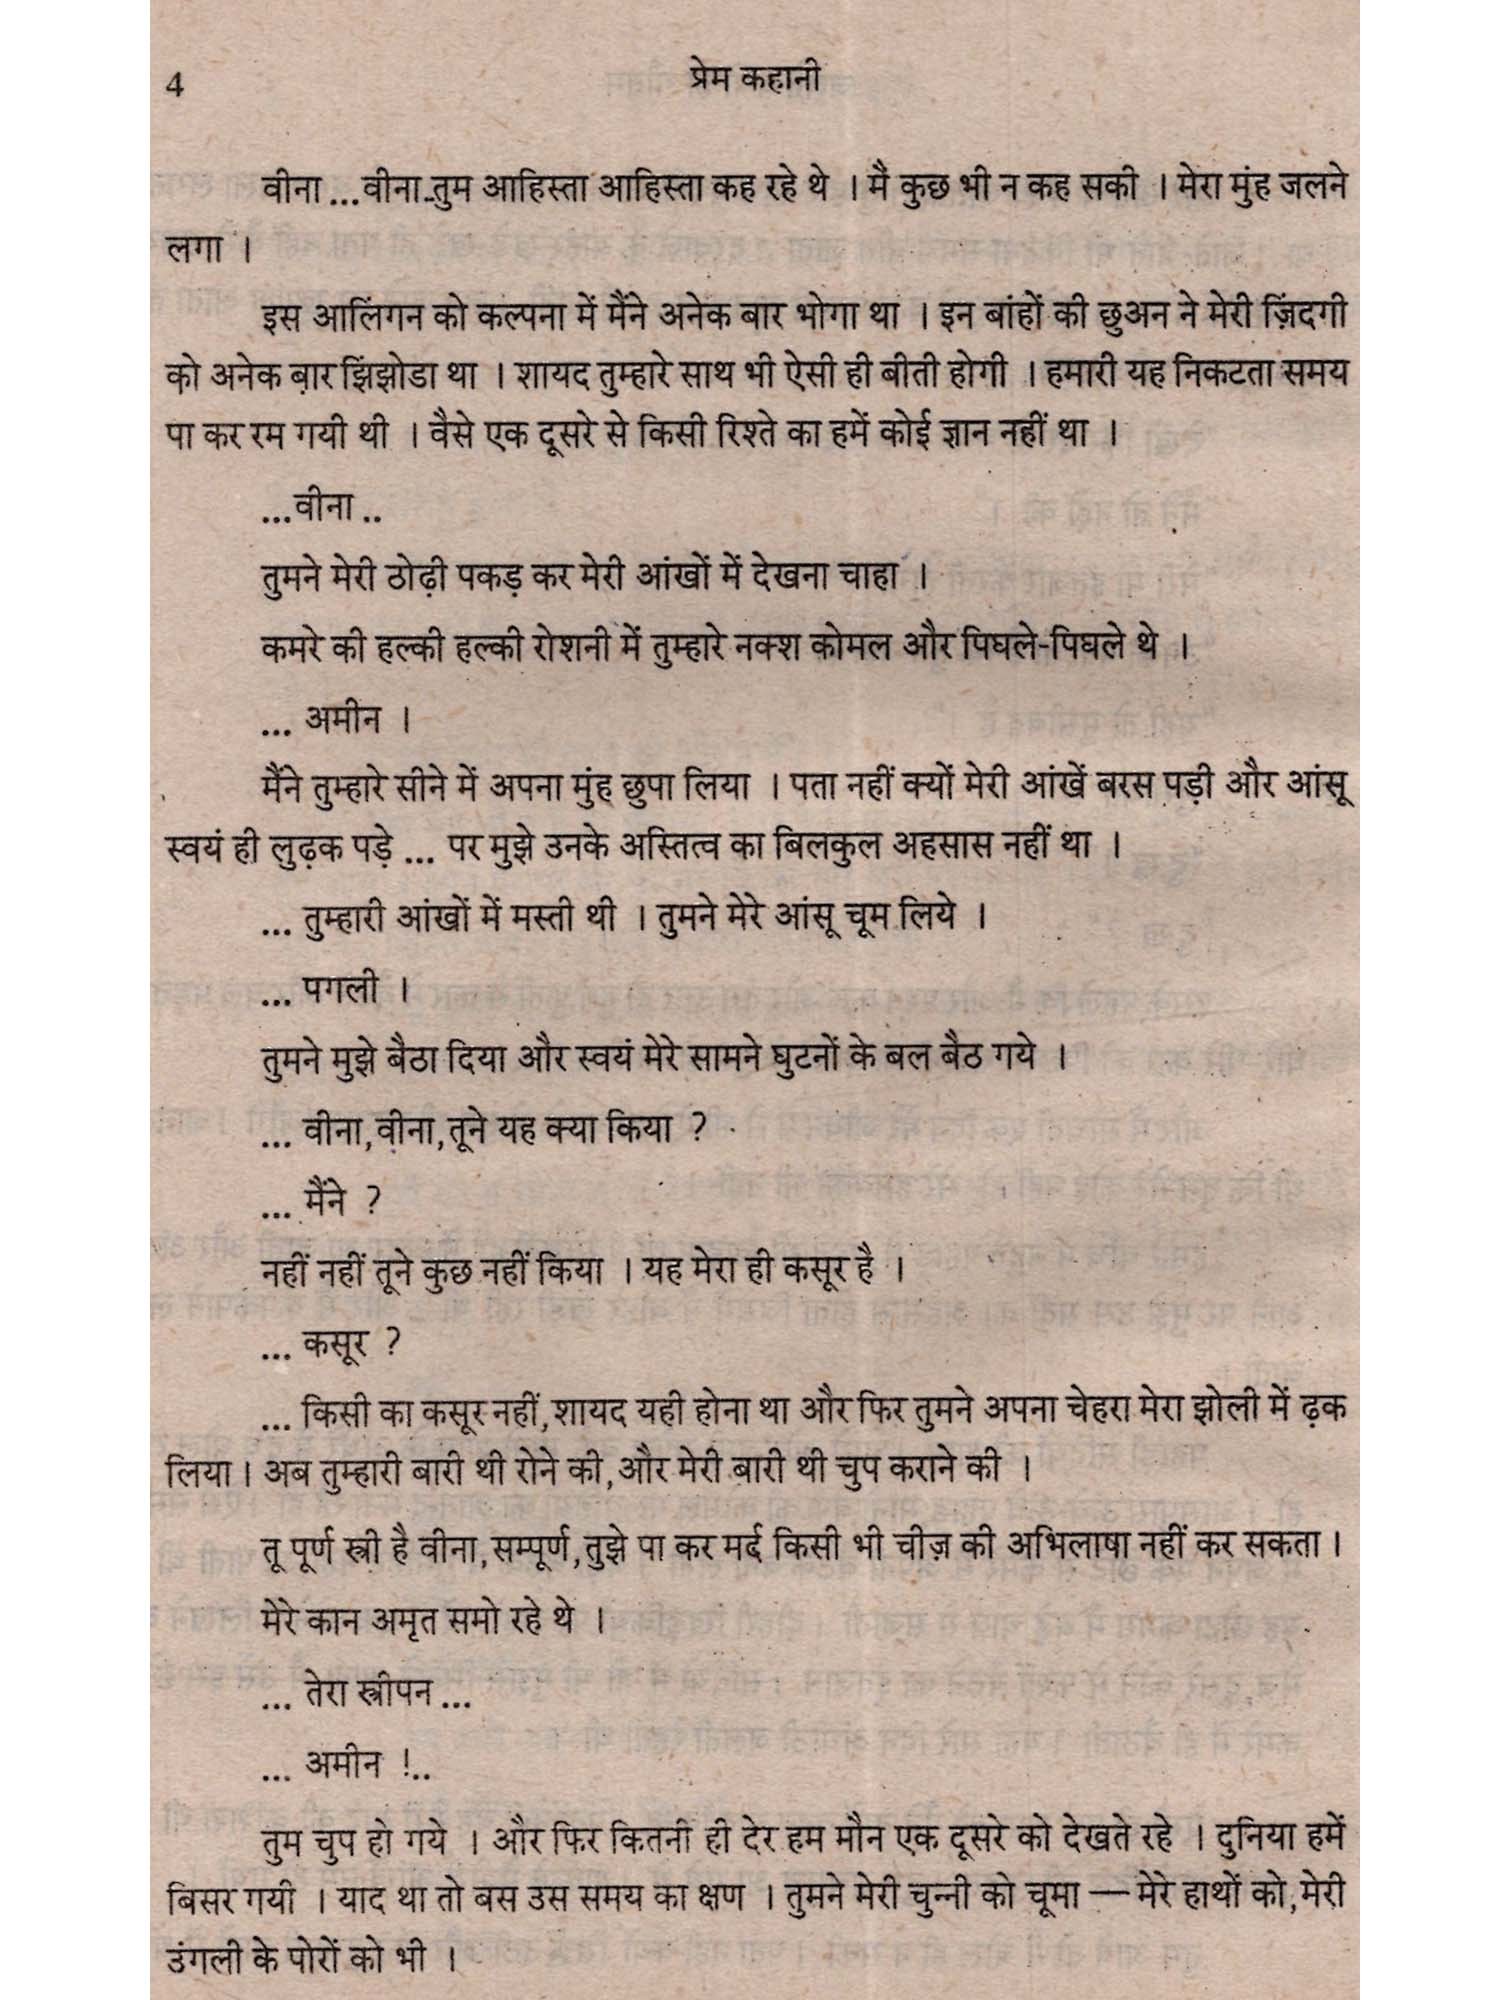 4
प्रेम कहानी
वीना ...वीना..तुम आहिस्ता आहिस्ता कह रहे थे । मै कुछ भी न कह सकी । मेरा मुंह जलने
लगा ।
इस आलिंगन को कल्पना में मैंने अनेक बार भोगा था । इन बांहों की छुअन ने मेरी ज़िंदगी
को अनेक बार झिंझोडा था । शायद तुम्हारे साथ भी ऐसी ही बीती होगी । हमारी यह निकटता समय
पा कर रम गयी थी । वैसे एक दूसरे से किसी रिश्ते का हमें कोई ज्ञान नहीं था ।
...वीना ..
तुमने मेरी ठोढ़ी पकड़ कर मेरी आंखों में देखना चाहा ।
कमरे की हल्की हल्की रोशनी में तुम्हारे नक्श कोमल और पिघले-पिघले थे ।
... अमीन ।
मैंने तुम्हारे सीने में अपना मुंह छुपा लिया । पता नहीं क्यों मेरी आंखें बरस पड़ी और आंसू
स्वयं ही लुढ़क पड़े ... पर मुझे उनके अस्तित्व का बिलकुल अहसास नहीं था ।
... तुम्हारी आंखों में मस्ती थी । तुमने मेरे आंसू चूम लिये ।
... पगली ।
तुमने मुझे बैठा दिया और स्वयं मेरे सामने घुटनों के बल बैठ गये ।
... वीना, वीना, तूने यह क्या किया ?
... मैंने ?
नहीं नहीं तूने कुछ नहीं किया । यह मेरा ही कसूर है ।
... कसूर ?
... किसी का कसूर नहीं, शायद यही होना था और फिर तुमने अपना चेहरा मेरा झोली में ढ़क
लिया । अब तुम्हारी बारी थी रोने की, और मेरी बारी थी चुप कराने की ।
तू पूर्ण स्त्री है वीना, सम्पूर्ण, तुझे पा कर मर्द किसी भी चीज़ की अभिलाषा नहीं कर सकता ।
मेरे कान अमृत समो रहे थे ।
... तेरा स्त्रीपन ...
... अमीन !..
तुम चुप हो गये । और फिर कितनी ही देर हम मौन एक दूसरे को देखते रहे । दुनिया हमें
बिसर गयी । याद था तो बस उस समय का क्षण । तुमने मेरी चुन्नी को चूमा — मेरे हाथों को, मेरी
उंगली के पोरों को भी ।